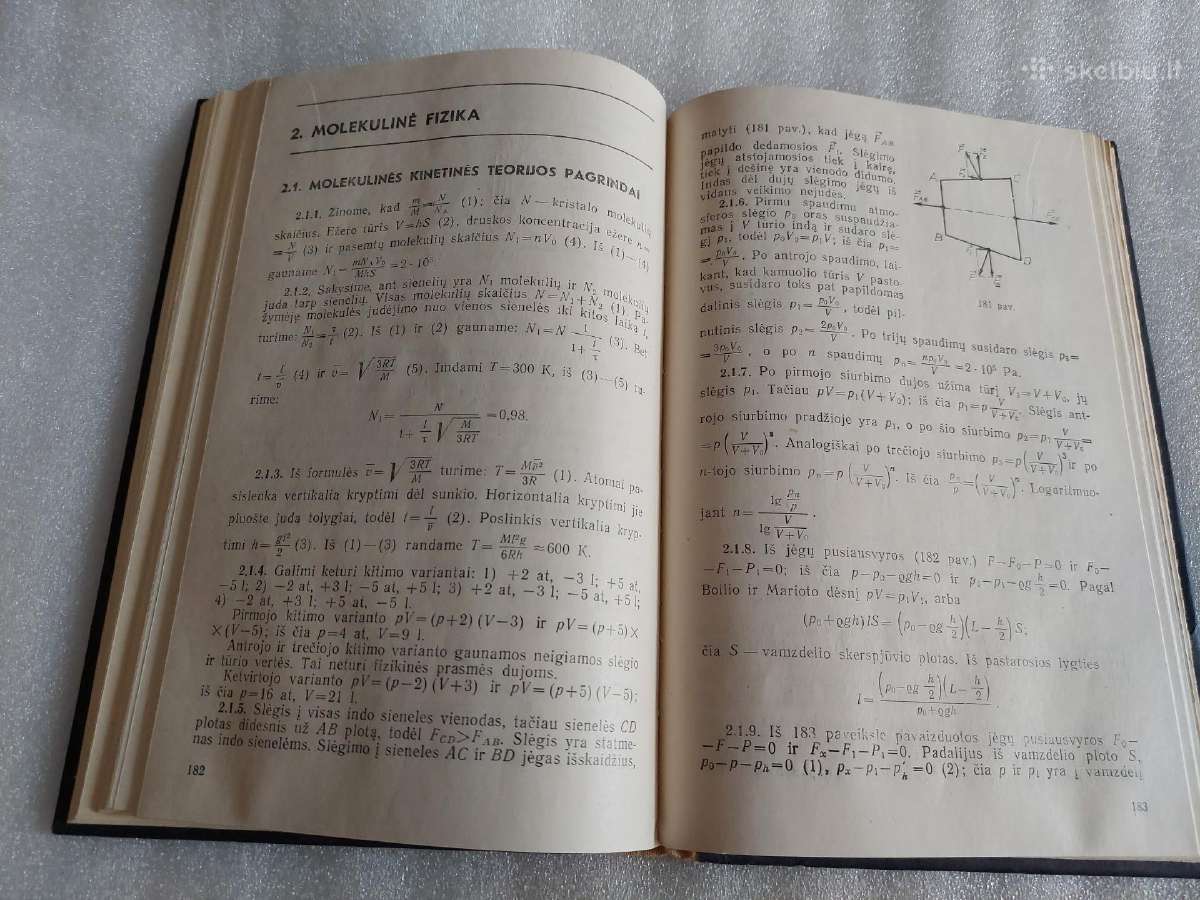 skelbiu.lt
2. MOLEKULINĖ FIZIKA
2.1. MOLEKULINĖS KINETINĖS TEORIJOS PAGRINDAI
2.1.1. Žinome, kad m/M = N/N_A (1); čia N — kristalo molekulių
skaičius. Ežero tūris V=hS (2), druskos koncentracija ežere n=
= N/V (3) ir pasemtų molekulių skaičius N₁=nV₀ (4). Iš (1)—(4)
gauname N₁= mN_AV₀/MhS =2·10⁶.
2.1.2. Sakysime, ant sienelių yra N₁ molekulių ir N₂ molekulių
juda tarp sienelių. Visas molekulių skaičius N=N₁+N₂ (1). Pa-
žymėję molekulės judėjimo nuo vienos sienelės iki kitos laiką t,
turime: N₁/N₂ = τ/t (2). Iš (1) ir (2) gauname: N₁=N 1/(1+ t/τ) (3). Bet
t= l/v̄ (4) ir v̄= √(3RT/M) (5). Imdami T=300 K, iš (3)—(5) tu-
rime:
N₁= N/(1+ l/τ √(M/3RT)) =0,98.
2.1.3. Iš formulės v̄= √(3RT/M) turime: T= Mv̄²/3R (1). Atomai pa-
sislenka vertikalia kryptimi dėl sunkio. Horizontalia kryptimi jie
pluošte juda tolygiai, todėl t= l/v̄ (2). Poslinkis vertikalia kryp-
timi h= gt²/2 (3). Iš (1)—(3) randame T= Ml²g/6Rh ≈600 K.
2.1.4. Galimi keturi kitimo variantai: 1) +2 at, −3 l; +5 at,
−5 l; 2) −2 at, +3 l; −5 at, +5 l; 3) +2 at, −3 l; −5 at, +5 l;
4) −2 at, +3 l; +5 at, −5 l.
Pirmojo kitimo varianto pV=(p+2)(V−3) ir pV=(p+5)×
×(V−5); iš čia p=4 at, V=9 l.
Antrojo ir trečiojo kitimo varianto gaunamos neigiamos slėgio
ir tūrio vertės. Tai neturi fizikinės prasmės dujoms.
Ketvirtojo varianto pV=(p−2)(V+3) ir pV=(p+5)(V−5);
iš čia p=16 at, V=21 l.
2.1.5. Slėgis į visas indo sieneles vienodas, tačiau sienelės CD
plotas didesnis už AB plotą, todėl F_CD>F_AB. Slėgis yra statme-
nas indo sienelėms. Slėgimo į sieneles AC ir BD jėgas išskaidžius,
182
matyti (181 pav.), kad jėgą F⃗_AB
papildo dedamosios F⃗₁. Slėgimo
jėgų atstojamosios tiek į kairę,
tiek į dešinę yra vienodo didumo.
Indas dėl dujų slėgimo jėgų iš
vidaus veikimo nejudės.
2.1.6. Pirmu spaudimu atmo-
sferos slėgio p₀ oras suspaudžia-
mas į V tūrio indą ir sudaro slė-
gį p₁, todėl p₀V₀=p₁V; iš čia p₁=
= p₀V₀/V. Po antrojo spaudimo, lai-
kant, kad kamuolio tūris V pasto-
vus, susidaro toks pat papildomas
dalinis slėgis p₁= p₀V₀/V, todėl pil-
A C B D
181 pav.
nutinis slėgis p₂= 2p₀V₀/V. Po trijų spaudimų susidaro slėgis p₃=
= 3p₀V₀/V, o po n spaudimų pₙ= np₀V₀/V =2·10⁵ Pa.
2.1.7. Po pirmojo siurbimo dujos užima tūrį V₁=V+V₀, jų
slėgis p₁. Tačiau pV=p₁(V+V₀); iš čia p₁=p V/(V+V₀). Slėgis ant-
rojo siurbimo pradžioje yra p₁, o po šio siurbimo p₂=p₁ V/(V+V₀)=
=p(V/(V+V₀))². Analogiškai po trečiojo siurbimo p₃=p(V/(V+V₀))³ ir po
n-tojo siurbimo pₙ=p(V/(V+V₀))ⁿ. Iš čia pₙ/p=(V/(V+V₀))ⁿ. Logaritmuo-
jant n= lg(pₙ/p) / lg(V/(V+V₀)).
2.1.8. Iš jėgų pusiausvyros (182 pav.) F−F₀−P=0 ir F₀−
−F₁−P₁=0; iš čia p−p₀−ϱgh=0 ir p₀−p₁−ϱg h/2=0. Pagal
Boilio ir Marioto dėsnį pV=p₁V₁, arba
(p₀+ϱgh)lS=(p₀−ϱg h/2)(L−h/2)S;
čia S — vamzdelio skerspjūvio plotas. Iš pastarosios lygties
l= (p₀−ϱg h/2)(L−h/2)/(p₀+ϱgh).
2.1.9. Iš 183 paveiksle pavaizduotos jėgų pusiausvyros F₀−
−F−P=0 ir Fₓ−F₁−P₁=0. Padalijus iš vamzdelio ploto S,
p₀−p−p_h=0 (1), pₓ−p₁−p′_h=0 (2); čia p ir p₁ yra į vamzdelį
183